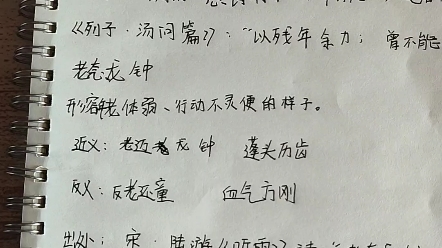 《列子·汤问篇》："以残年余力；曾不能
老态龙钟
形容老体弱、行动不灵便的样子。
近义：老迈龙钟 蓬头历齿
反义：反老还童 血气方刚
出处：宋·陆游《听雨》诗："